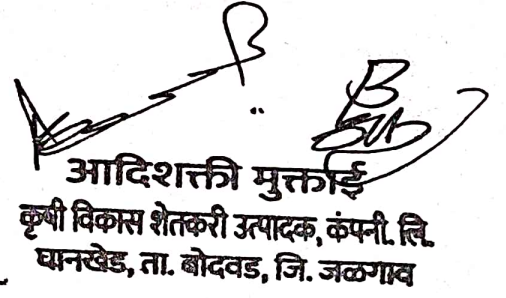 आदिशक्ती मुक्ताई
कृषी विकास शेतकरी उत्पादक, कंपनी. लि.
घानखेड, ता. बोदवड, जि. जळगाव